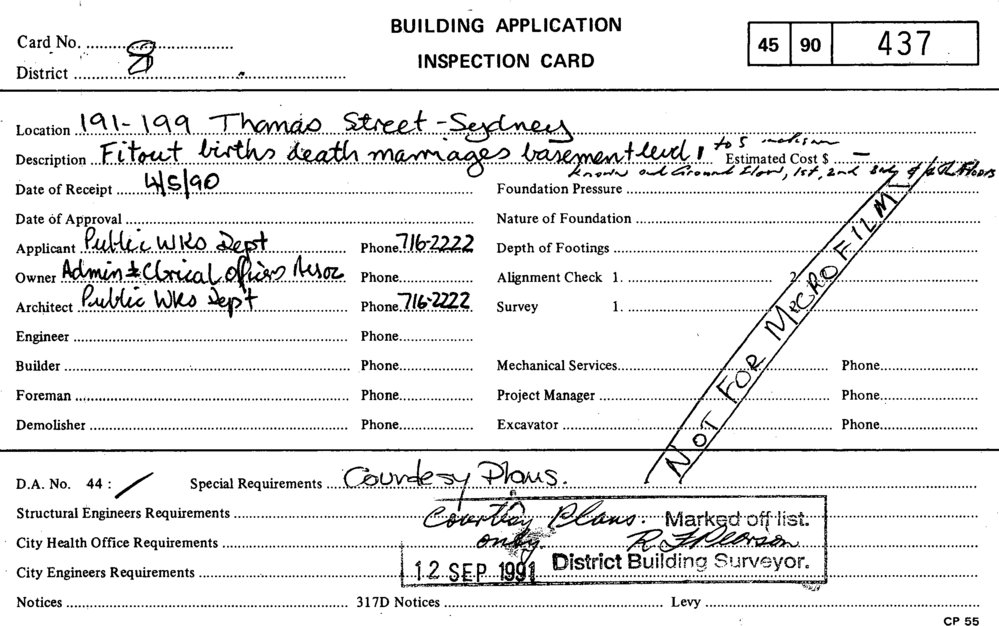 BUILDING APPLICATION
INSPECTION CARD
Card No.
District 8
45 90 437
Location 191-199 Thomas Street - Sydney
Description Fitout births death marriages basement level, to 5
Estimated Cost $ —
known and Ground Floor, 1st, 2nd 3rd & 4th Floors
Date of Receipt 4/5/90 Foundation Pressure
Date of Approval Nature of Foundation
Applicant Public WKs Dept Phone 716-2222 Depth of Footings
Owner Admin & Clerical Officers Assoc Phone Alignment Check 1. 2.
Architect Public WKs Dept Phone 716-2222 Survey 1.
Engineer Phone
Builder Phone Mechanical Services Phone
Foreman Phone Project Manager Phone
Demolisher Phone Excavator Phone
NOT FOR MICROFILM
D.A. No. 44 : / Special Requirements Courdesy Plans.
Structural Engineers Requirements Courtesy Plans. Marked off list.
City Health Office Requirements only R J Pearson
City Engineers Requirements 12 SEP 1991 District Building Surveyor.
Notices 317D Notices Levy
CP 55